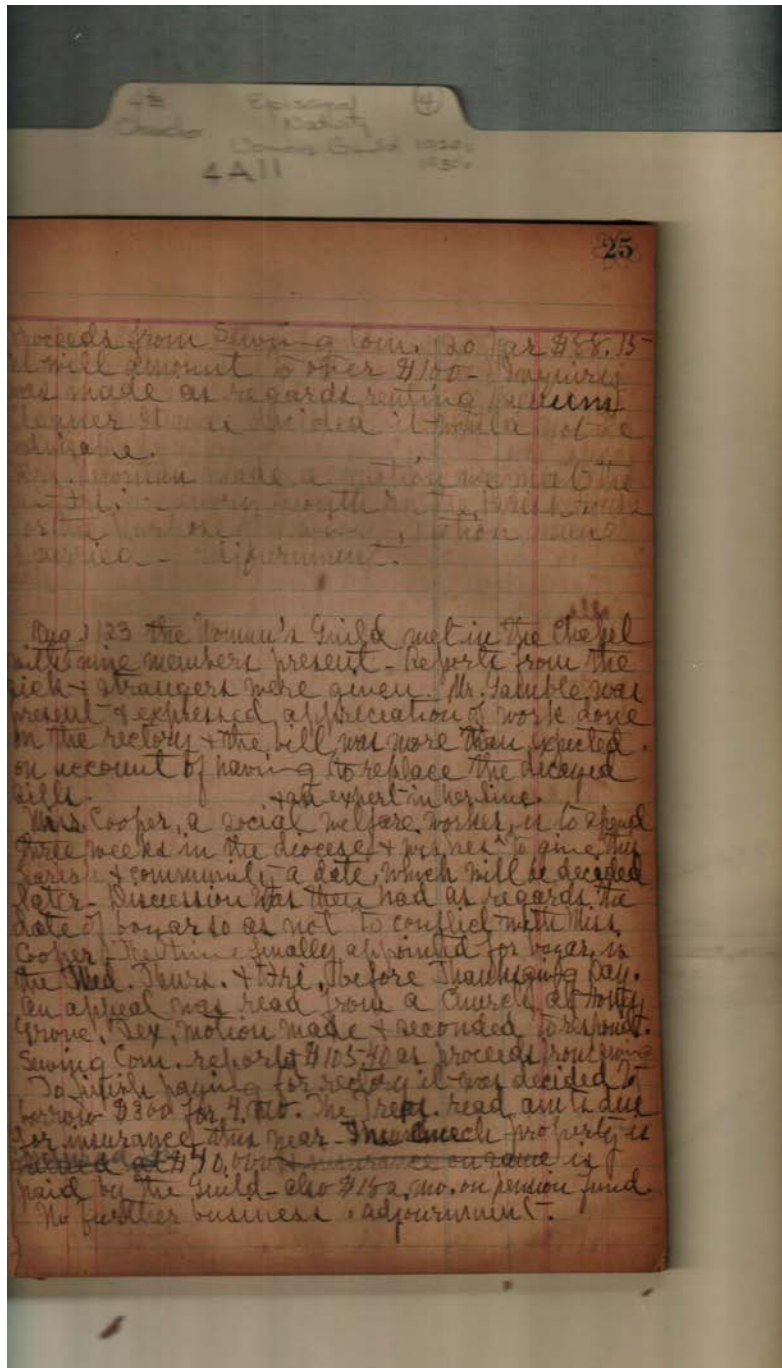 4th Episcopal ④
Church Nativity
Womans Guild 1920s
4A11 1930s
25
Proceeds from Sewing Com. so far $88.15
It will amount to over $100 - Inquiry
was made as regards renting
cleaner it was decided it would not be
advisable.
made a motion
every month
motion
carried - Adjournment.
Aug. 23 the Woman's Guild met in the Chapel
with nine members present - Reports from the
sick & strangers were given. Mr. Gamble was
present & expressed appreciation of work done
on the rectory & the bill was more than expected
on account of having to replace the decayed
sills. & an expert in her line
Miss Cooper, a social welfare worker, is to spend
three weeks in the diocese & wishes to give this
parish & community a date, which will be decided
later - Discussion was then had as regards the
date of bazar so as not to conflict with Miss
Cooper. The time finally appointed for bazar is
the Wed. Thurs. & Fri. before Thanksgiving Day.
An appeal was read from a Church at Honey
Grove, Tex, motion made & seconded to respond.
Sewing Com. reported $105.40 as proceeds from sewing
To finish paying for rectory it was decided to
borrow $300 for 4 mo. The Treas. read amts due
for insurance this year - The Church property is
valued at $40,000 & insurance on same is
paid by the Guild - also $18 a mo. on pension fund.
No further business, adjournment.